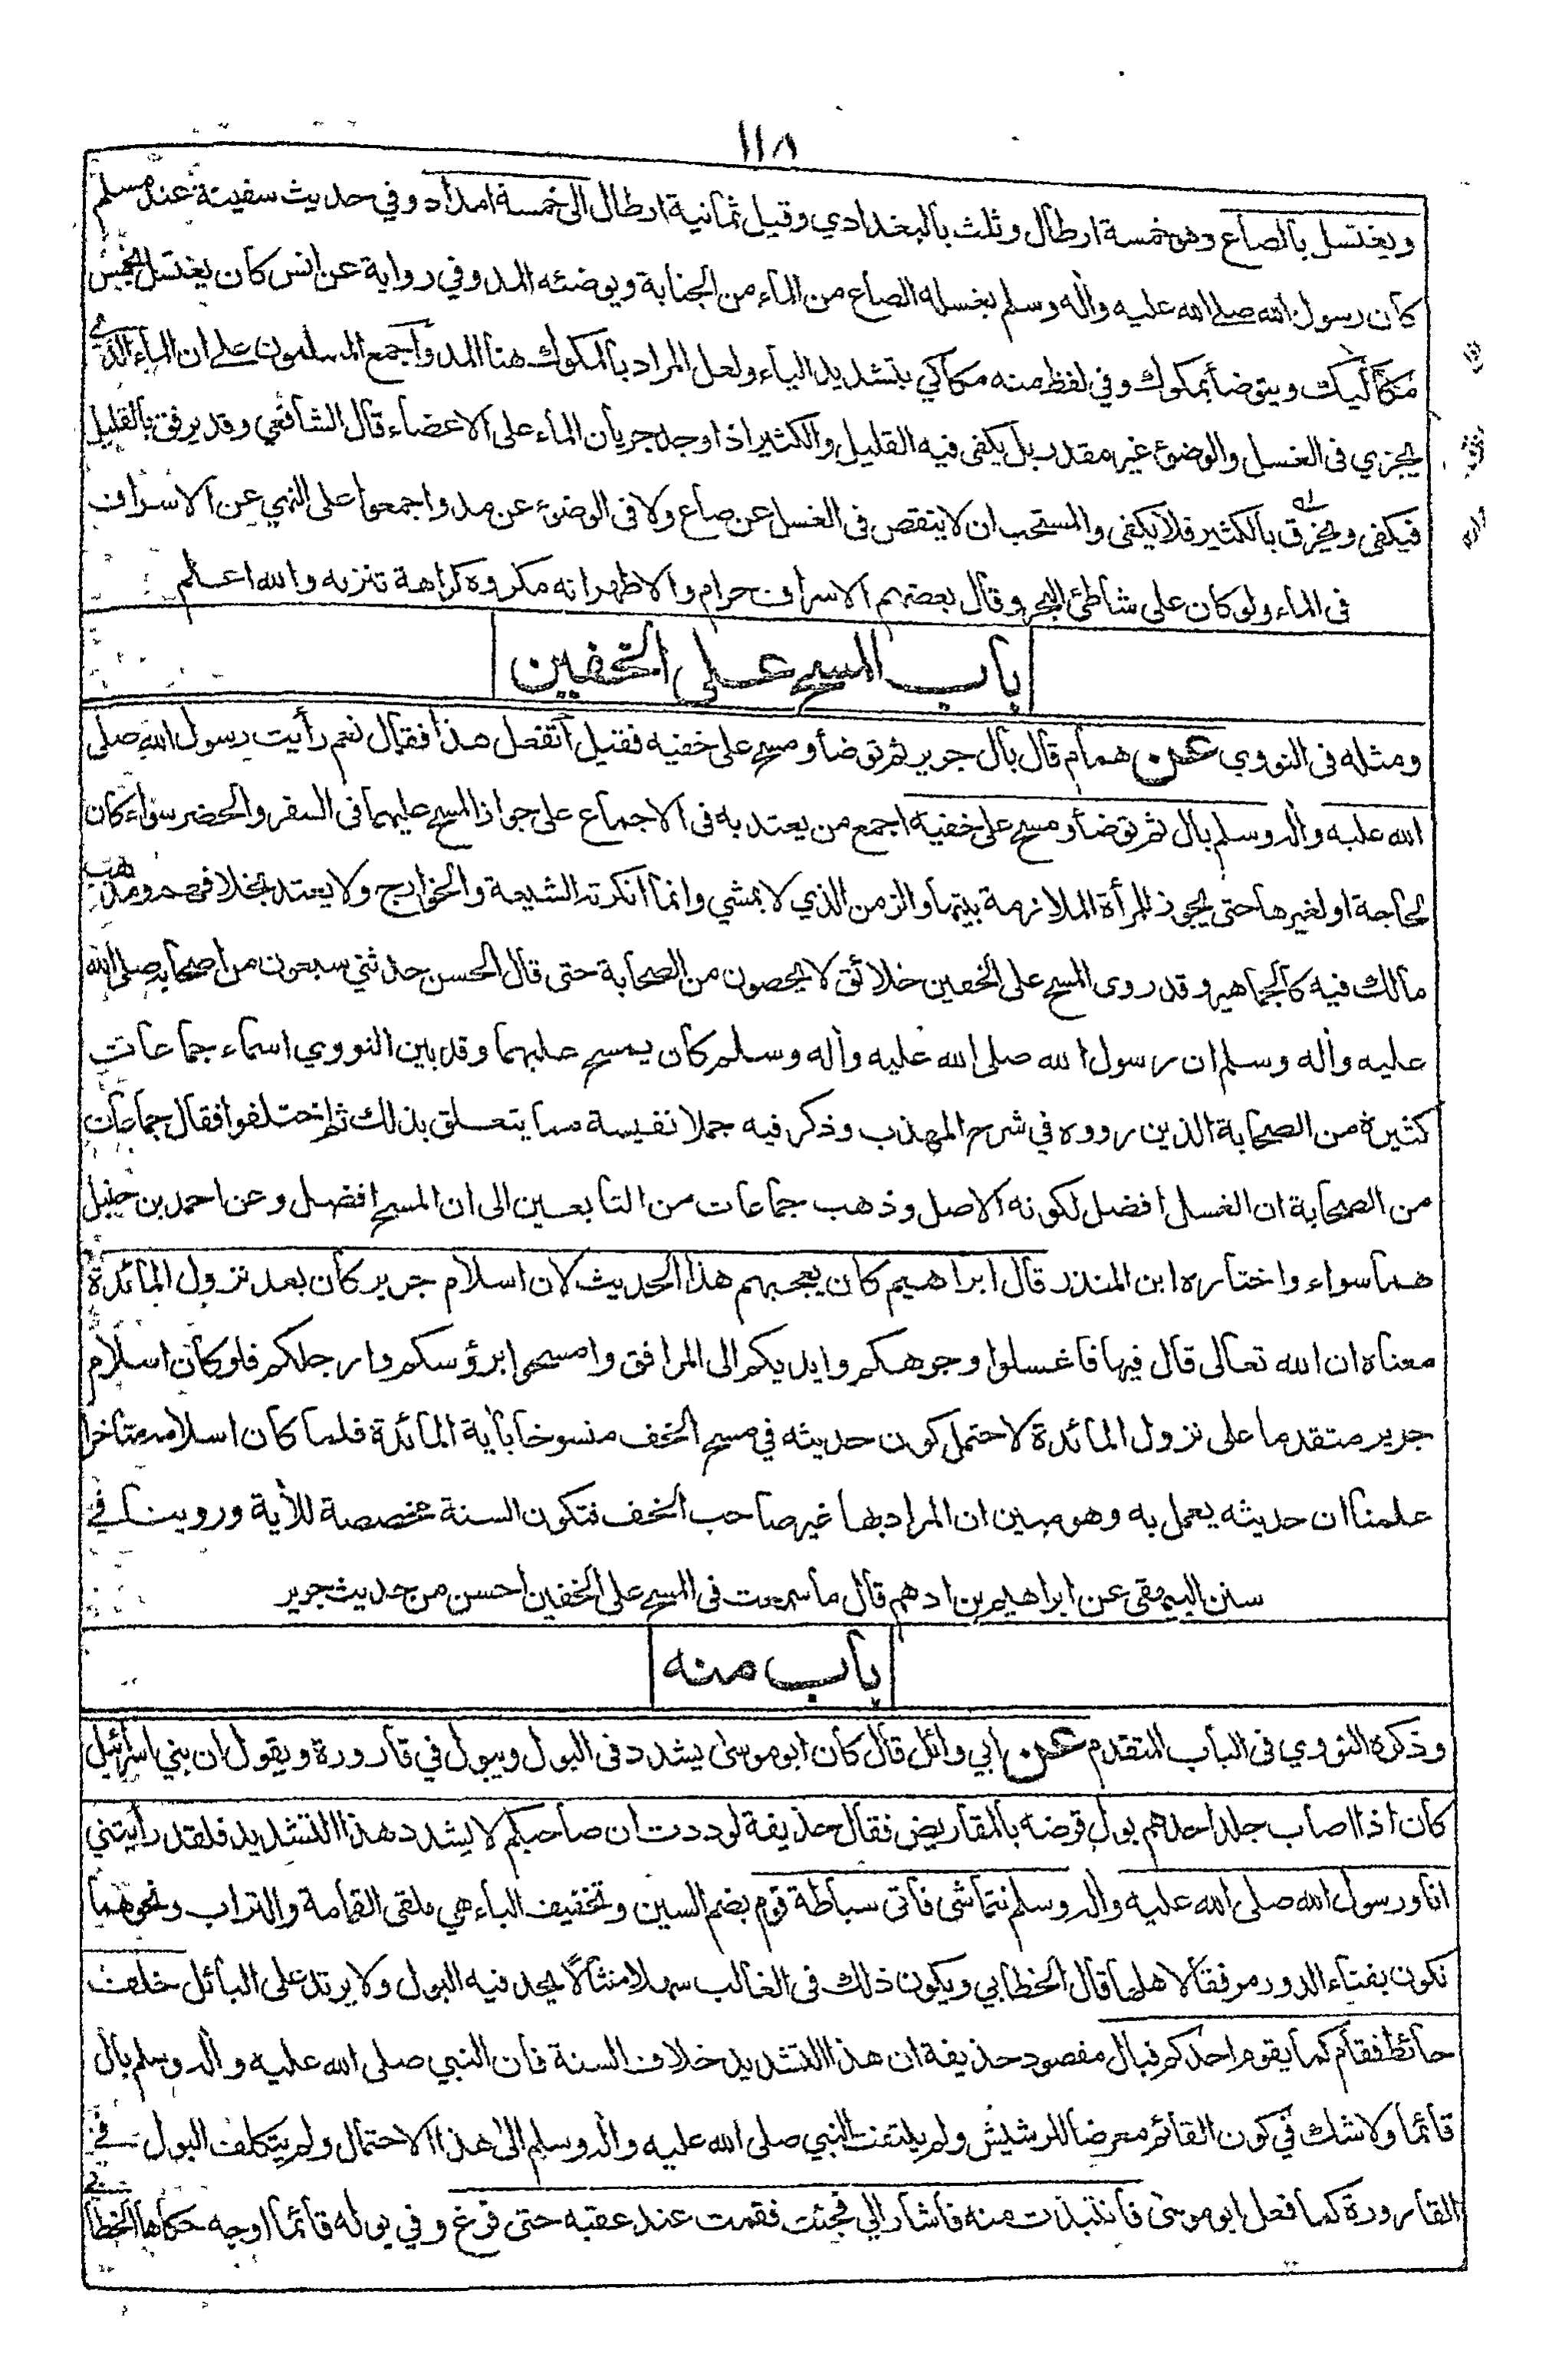 ١١٨
ويغتسل بالصاع وهو خمسة ارطال وثلث بالبغدادي وقيل ثمانية ارطال الى خمسة امداد وفي حديث سفينة عند مسلم
كان رسول الله صلى الله عليه واله وسلم يغسله الصاع من الماء من الجنابة ويوضئه المد وفي رواية عن انس كان يغتسل بخمس
مكاكيك ويتوضأ بمكوك وفي لفظ منه مكاكي بتشديد الياء ولعل المراد بالمكوك هنا المد واجمع المسلمون على ان الماء الذي
يجزي فى الغسل والوضوء غير مقدر بل يكفى فيه القليل والكثير اذا وجد جريان الماء على الاعضاء قال الشافعي وقد يرفق بالقليل
فيكفى ويخرق بالكثير فلا يكفى والمستحب ان لا ينقص فى الغسل عن صاع ولا فى الوضوء عن مد واجمعوا على النهي عن الاسراف
فى الماء ولو كان على شاطئ البحر وقال بعضهم الاسراف حرام والاظهر انه مكروه كراهة تنزيه والله اعلم
باب المسح على الخفين
ومثله فى النووي عن همام قال بال جرير ثم توضأ ومسح على خفيه فقيل أتفعل هذا فقال نعم رأيت رسول الله صلى
الله عليه واله وسلم بال ثم توضأ ومسح على خفيه اجمع من يعتد به فى الاجماع على جواز المسح عليهما فى السفر والحضر سواء كان
لحاجة او لغيرها حتى يجوز للمرأة الملازمة بيتها والزمن الذي لا يمشي وانما انكرته الشيعة والخوارج ولا يعتد بخلافهم ومذهب
مالك فيه كالجماهير وقد روى المسح على الخفين خلائق لا يحصون من الصحابة حتى قال الحسن حدثني سبعون من اصحابه صلى الله
عليه واله وسلم ان رسول الله صلى الله عليه واله وسلم كان يمسح عليهما وقد بين النووي اسماء جماعات
كثيرة من الصحابة الذين رووه في شرح المهذب وذكر فيه جملا نفيسة مما يتعلق بذلك ثم اختلفوا فقال جماعات
من الصحابة ان الغسل افضل لكونه الاصل وذهب جماعات من التابعين الى ان المسح افضل وعن احمد بن حنبل
هما سواء واختاره ابن المنذر قال ابراهيم كان يعجبهم هذا الحديث لان اسلام جرير كان بعد نزول المائدة
معناه ان الله تعالى قال فيها فاغسلوا وجوهكم وايديكم الى المرافق وامسحوا برؤسكم وارجلكم فلو كان اسلام
جرير متقدما على نزول المائدة لاحتمل كون حديثه في مسح الخف منسوخا بأية المائدة فلما كان اسلامه متاخرا
علمنا ان حديثه يعمل به وهو مبين ان المراد بها غير صاحب الخف فتكون السنة مخصصة للأية وروينا في
سنن البيهقى عن ابراهيم بن ادهم قال ما سمعت فى المسح على الخفين احسن من حديث جرير
باب منه
وذكره النووي فى الباب المتقدم عن ابي وائل قال كان ابو موسى يشدد فى البول ويبول في قارورة ويقول ان بني اسرائيل
كان اذا اصاب جلد احدهم بول قرضه بالمقاريض فقال حذيفة لوددت ان صاحبكم لا يشدد هذا التشديد فلقد رأيتني
انا ورسول الله صلى الله عليه واله وسلم نتماشى فأتى سباطة قوم بضم السين وتخفيف الباء هي ملقى القمامة والتراب ونحوهما
تكون بفناء الدور مرفقا لاهلها قال الخطابي ويكون ذلك فى الغالب سهلا منثالا يحد فيه البول ولا يرتد على البائل خلف
حائط فقام كما يقوم احدكم فبال مقصود حذيفة ان هذا التشديد خلاف السنة فان النبي صلى الله عليه واله وسلم بال
قائما ولا شك في كون القائم معرضا للرشيش ولم يلتفت النبي صلى الله عليه واله وسلم الى هذا الاحتمال ولم يتكلف البول في
القارورة كما فعل ابو موسى فانتبذت منه فأشار الي فجئت فقمت عند عقبه حتى فرغ وفي بوله قائما اوجه حكاها الخطا